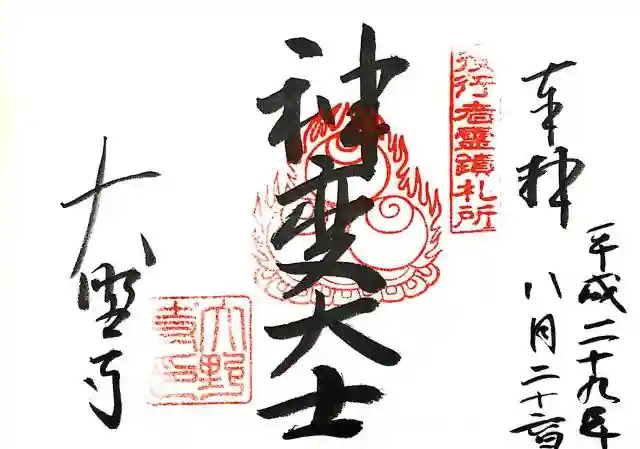 奉拝
平成二十九年
八月二十六日
役行者霊蹟札所
神変大士
大野寺
大野寺印